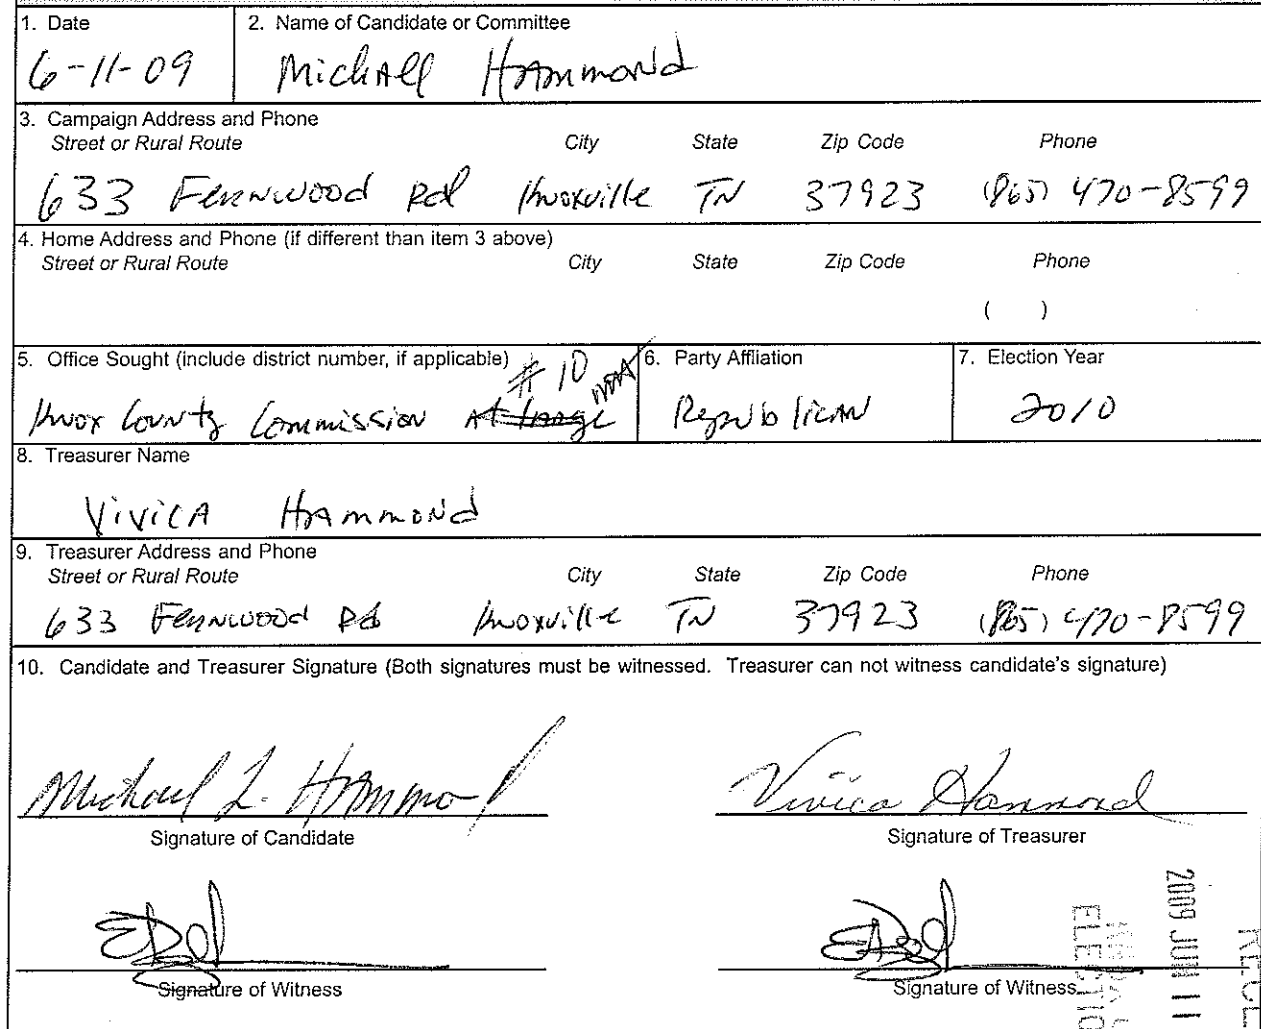 1. Date
2. Name of Candidate or Committee
6-11-09
Michael Hammond
3. Campaign Address and Phone
Street or Rural Route City State Zip Code Phone
633 Fernwood Rd Knoxville TN 37923 (865) 470-8599
4. Home Address and Phone (if different than item 3 above)
Street or Rural Route City State Zip Code Phone
( )
5. Office Sought (include district number, if applicable) # 10
6. Party Affliation
7. Election Year
Knox County Commission At Large
Republican
2010
8. Treasurer Name
Vivica Hammond
9. Treasurer Address and Phone
Street or Rural Route City State Zip Code Phone
633 Fernwood Rd Knoxville TN 37923 (865) 470-8599
10. Candidate and Treasurer Signature (Both signatures must be witnessed. Treasurer can not witness candidate's signature)
Michael L. Hammond
Vivica Hammond
Signature of Candidate
Signature of Treasurer
Signature of Witness
Signature of Witness
2009 JUN 11